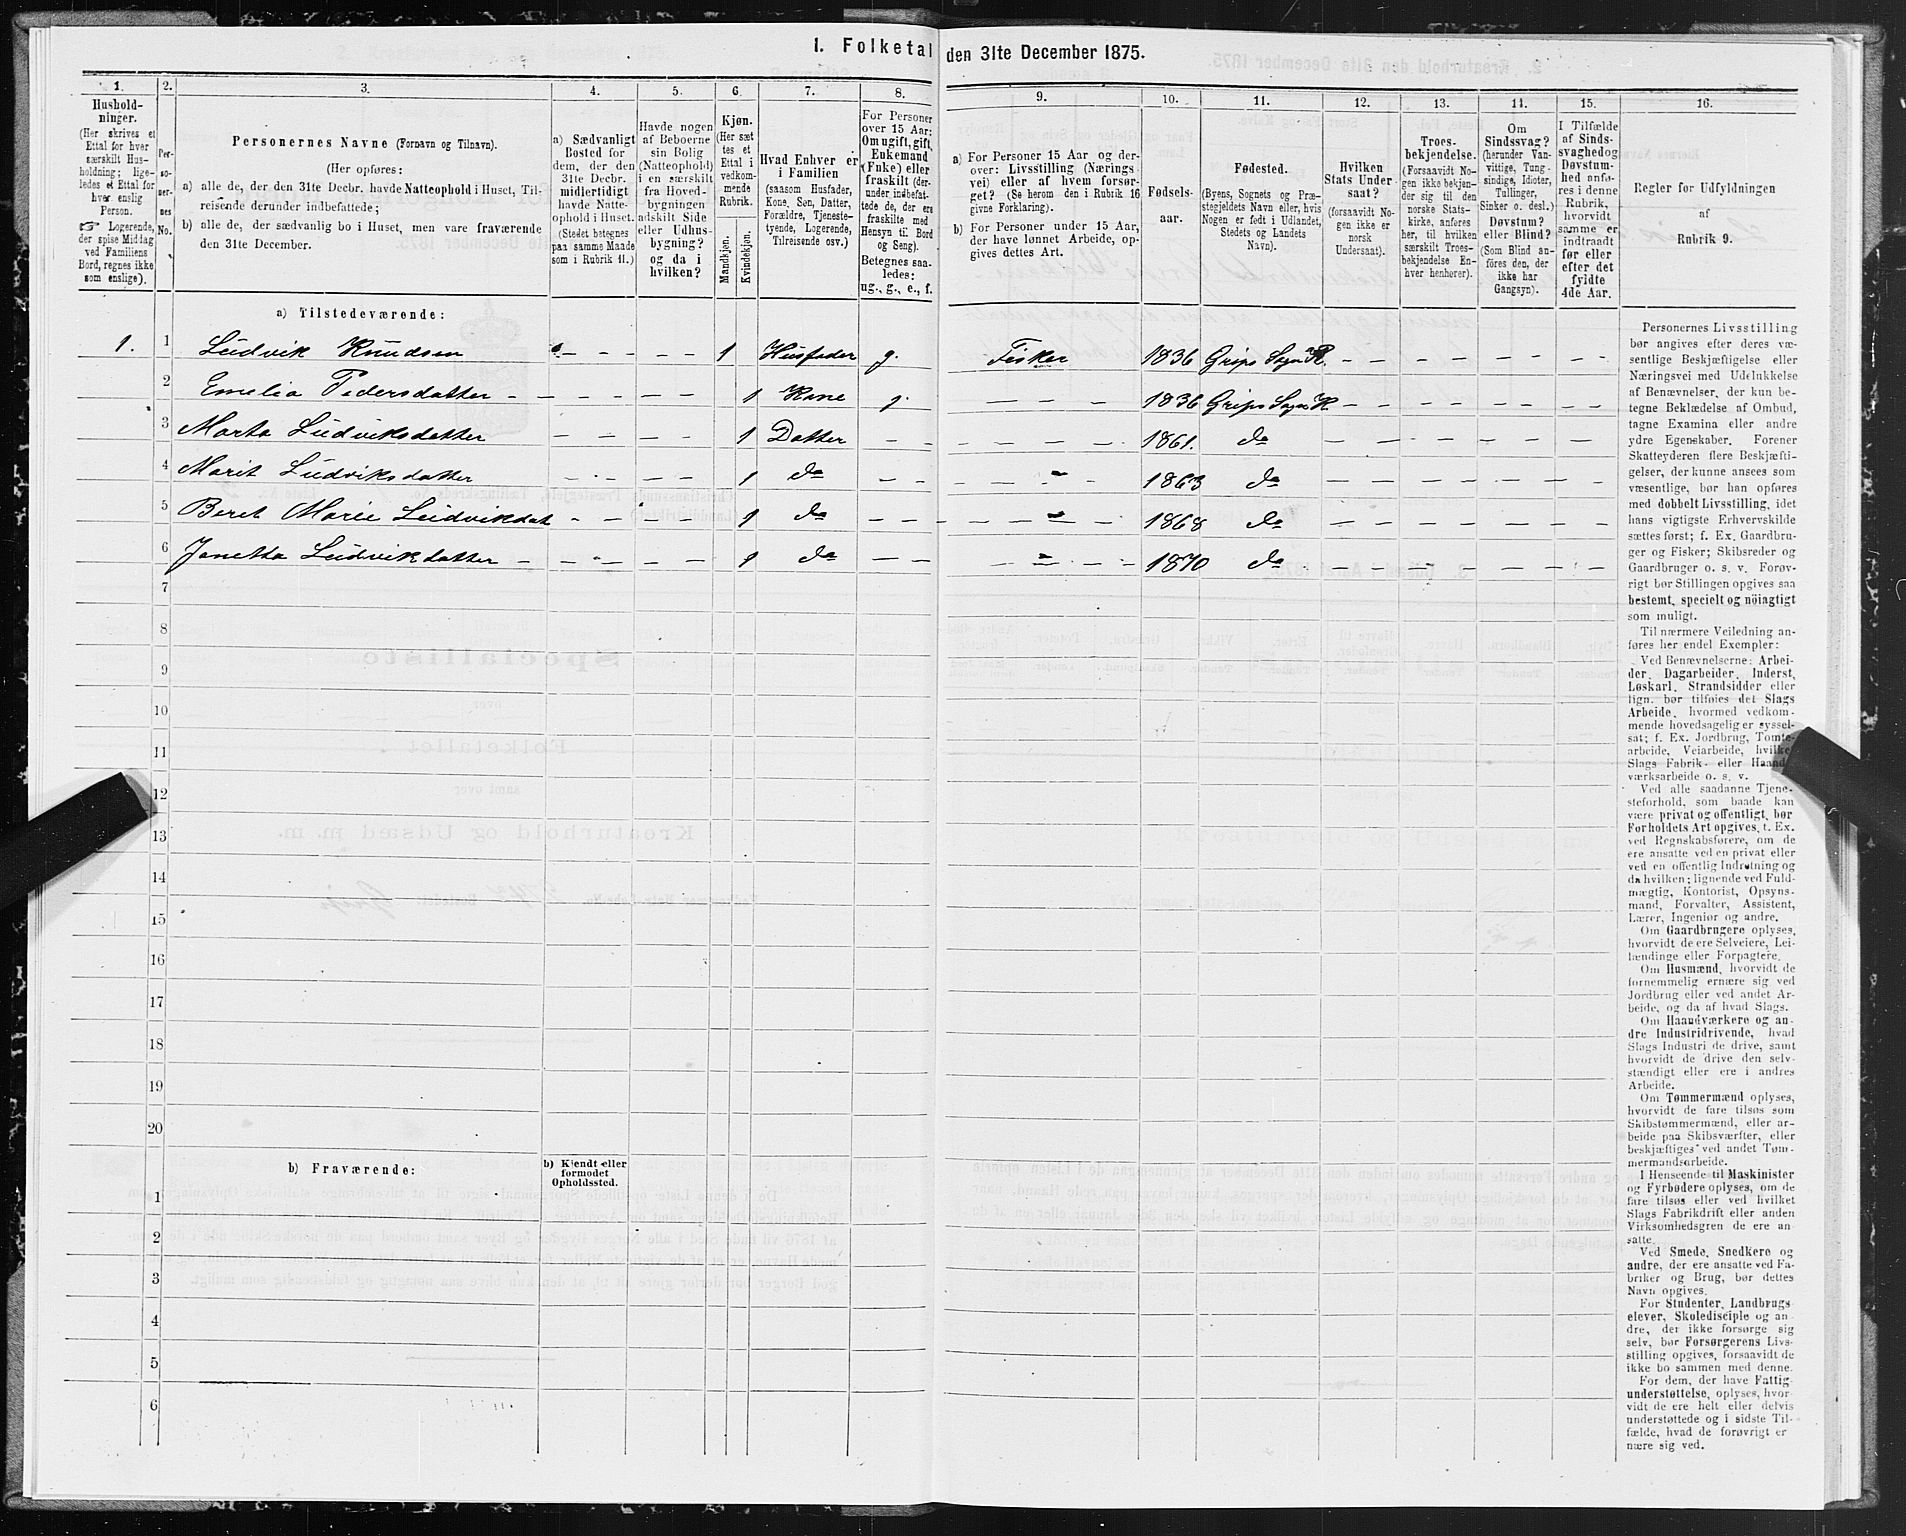 1. Folketal den 31te December 1875.
1. 2. 3. 4. 5. 6. 7. 8. 9. 10. 11. 12. 13. 14. 15. 16.
Hushold-
ninger.
(Her skrives et
Ettal for hver
særskilt Hus-
holdning; lige-
ledes et Ettal for
hver enslig
Person.
☞ Logerende,
der spise Middag
ved Familiens
Bord, regnes ikke
som enslige).
Per-
so-
ner-
nes
No.
Personernes Navne (Fornavn og Tilnavn).
(Her opføres:
a) alle de, der den 31te Decbr. havde Natteophold i Huset, Til-
reisende derunder indbefattede;
b) alle de, der sædvanlig bo i Huset, men vare fraværende
den 31te December.
a) Sædvanligt
Bosted for
dem, der den
31te Decbr.
midlertidigt
havde Natte-
ophold i Huset.
(Stedet betegnes
paa samme Maade
som i Rubrik 11.)
Havde nogen
af Beboerne
sin Bolig
(Natteophold)
i en særskilt
fra Hoved-
bygningen
adskilt Side
eller Udhus-
bygning?
og da i
hvilken?
Kjøn.
(Her sæt
tes et
Ettal i
vedkom-
mende
Rubrik.
Mandkjøn.
Kvindekjøn.
Hvad Enhver er
i Familien
(saasom Husfader,
Kone, Søn, Datter,
Forældre, Tjeneste-
tyende, Logerende,
Tilreisende osv.)
For Personer
over 15 Aar:
Om ugift, gift,
Enkemand
(Enke) eller
fraskilt (der-
under indbefat-
tede de, der ere
fraskilte med
Hensyn til Bord
og Seng).
Betegnes saa-
ledes:
ug., g., e., f.
a) For Personer 15 Aar og der-
over: Livsstilling (Nærings
vei) eller af hvem forsør-
get? (Se herom den i Rubrik 16
givne Forklaring).
b) For Personer under 15 Aar,
der have lønnet Arbeide, op-
gives dettes Art.
Fødsels-
aar.
Fødested.
(Byens, Sognets og Præ-
stegjeldets Navn eller, hvis
Nogen er født i Udlandet,
Stedets og Landets
Navn).
Hvilken
Stats Under
saat?
(forsaavidt No-
gen ikke er
norsk
Undersaat).
Troes-
bekjendelse.
(Forsaavidt No-
gen ikke bekjen-
der sig til den
norske Stats-
kirke, anføres
her, til hvilken
særskilt Troes-
bekjendelse En-
hver henhører).
Om
Sindssvag?
(herunder Van-
vittige, Tung-
sindige, Idioter,
Tullinger,
Sinker o. desl.)
Døvstum?
eller Blind?
(Som Blind an-
føres den, der
ikke har
Gangsyn).
I Tilfælde
af Sinds-
svaghed og
Døvstum-
hed anfø-
res i denne
Rubrik,
hvorvidt
samme er
indtraadt
før eller
efter det
fyldte
4de Aar.
Regler for Udfyldningen
af
Rubrik 9.
a) Tilstedeværende:
1. 1 Ludvik Knudsen - - - - 1 Husfader g. Fisker 1836 Grips Sogn K. - - - - - - -
2 Emelia Pedersdatter - - - - - 1 Kone g. - - - 1836 Grips Sogn K - - - - - - -
3 Marta Ludviksdatter - - - - 1 Datter - - - - - 1861. do - - - - - - -
4 Marit Ludviksdatter - - - - 1 do - - - - 1863 do - - - - - - -
5 Beret Marie Ludvikdat - - - - 1 do - - - - 1868 do - - - - - - -
6 Janetta Ludvikdatter - - - - - 1 do - - - - 1870 do - - - - - - -
7
8
9
10
11
12
13
14
15
16
17
18
19
20
b) Fraværende:
b) Kjendt eller
formodet
Opholdssted.
1
2
3
4
5
6
Personernes Livsstilling
bør angives efter deres væ-
sentlige Beskjæftigelse eller
Næringsvei med Udelukkelse
af Benævnelser, der kun be-
tegne Beklædelse af Ombud,
tagne Examina eller andre
ydre Egenskaber. Forener
Skatteyderen flere Beskjæfti-
gelser, der kunne ansees som
væsentlige, bør han opføres
med dobbelt Livsstilling, idet
hans vigtigste Erhvervskilde
sættes først; f. Ex. Gaardbru-
ger og Fisker; Skibsreder og
Gaardbruger o. s. v. Forøv-
rigt bør Stillingen opgives saa
bestemt, specielt og nöiagtigt
som muligt.
Til nærmere Veiledning an-
føres her endel Exempler:
Ved Benævnelserne: Arbei-
der, Dagarbeider, Inderst,
Løskarl, Strandsidder eller
lign. bør tilføies det Slags
Arbeide, hvormed vedkom-
mende hovedsagelig er syssel-
sat; f. Ex. Jordbrug, Tomte-
arbeide, Veiarbeide, hvilket
Slags Fabrik- eller Haand-
værksarbeide o. s. v.
Ved alle saadanne Tjene-
steforhold, som baade kan
være privat og offentligt, bør
Forholdets Art opgives, t. Ex.
ved Regnskabsførere, om de
ere ansatte ved en privat eller
ved en offentlig Indretning og
da hvilken; lignende ved Fuld-
mægtig, Kontorist, Opsyns-
mand, Forvalter, Assistent,
Lærer, Ingeniør og andre.
Om Gaardbrugere oplyses,
hvorvidt de ere Selveiere, Lei-
lændinge eller Forpagtere.
Om Husmænd, hvorvidt de
fornemmelig ernære sig ved
Jordbrug eller ved andet Ar-
beide, og da af hvad Slags.
Om Haandværkere og an-
dre Industridrivende, hvad
Slags Industri de drive, samt
hvorvidt de drive den selv-
stændigt eller ere i andres
Arbeide.
Om Tømmermænd oplyses,
hvorvidt de fare tilsøs som
Skibstømmermænd, eller ar-
beide paa Skibsværfter, eller
beskjæftiges ved andet Tøm-
mermandsarbeide.
I Henseende til Maskinister
og Fyrbødere oplyses, om de
fare tilsøs eller ved hvilket
Slags Fabrikdrift eller anden
Virksomhedsgren de ere an-
satte.
Ved Smede, Snedkere og
andre, der ere ansatte ved Fa-
briker og Brug, bør dettes
Navn opgives.
For Studenter, Landbrugs
elever, Skoledisciple og an-
dre, der ikke forsørge sig
selv, bør Forsørgerens Livs-
stilling opgives, forsaavidt de
ikke bo sammen med denne.
For dem, der have Fattig
understøttelse, oplyses, hvor-
vidt de ere helt eller delvis
understøttede og i sidste Til-
fælde, hvad de forøvrigt er
nære sig ved.